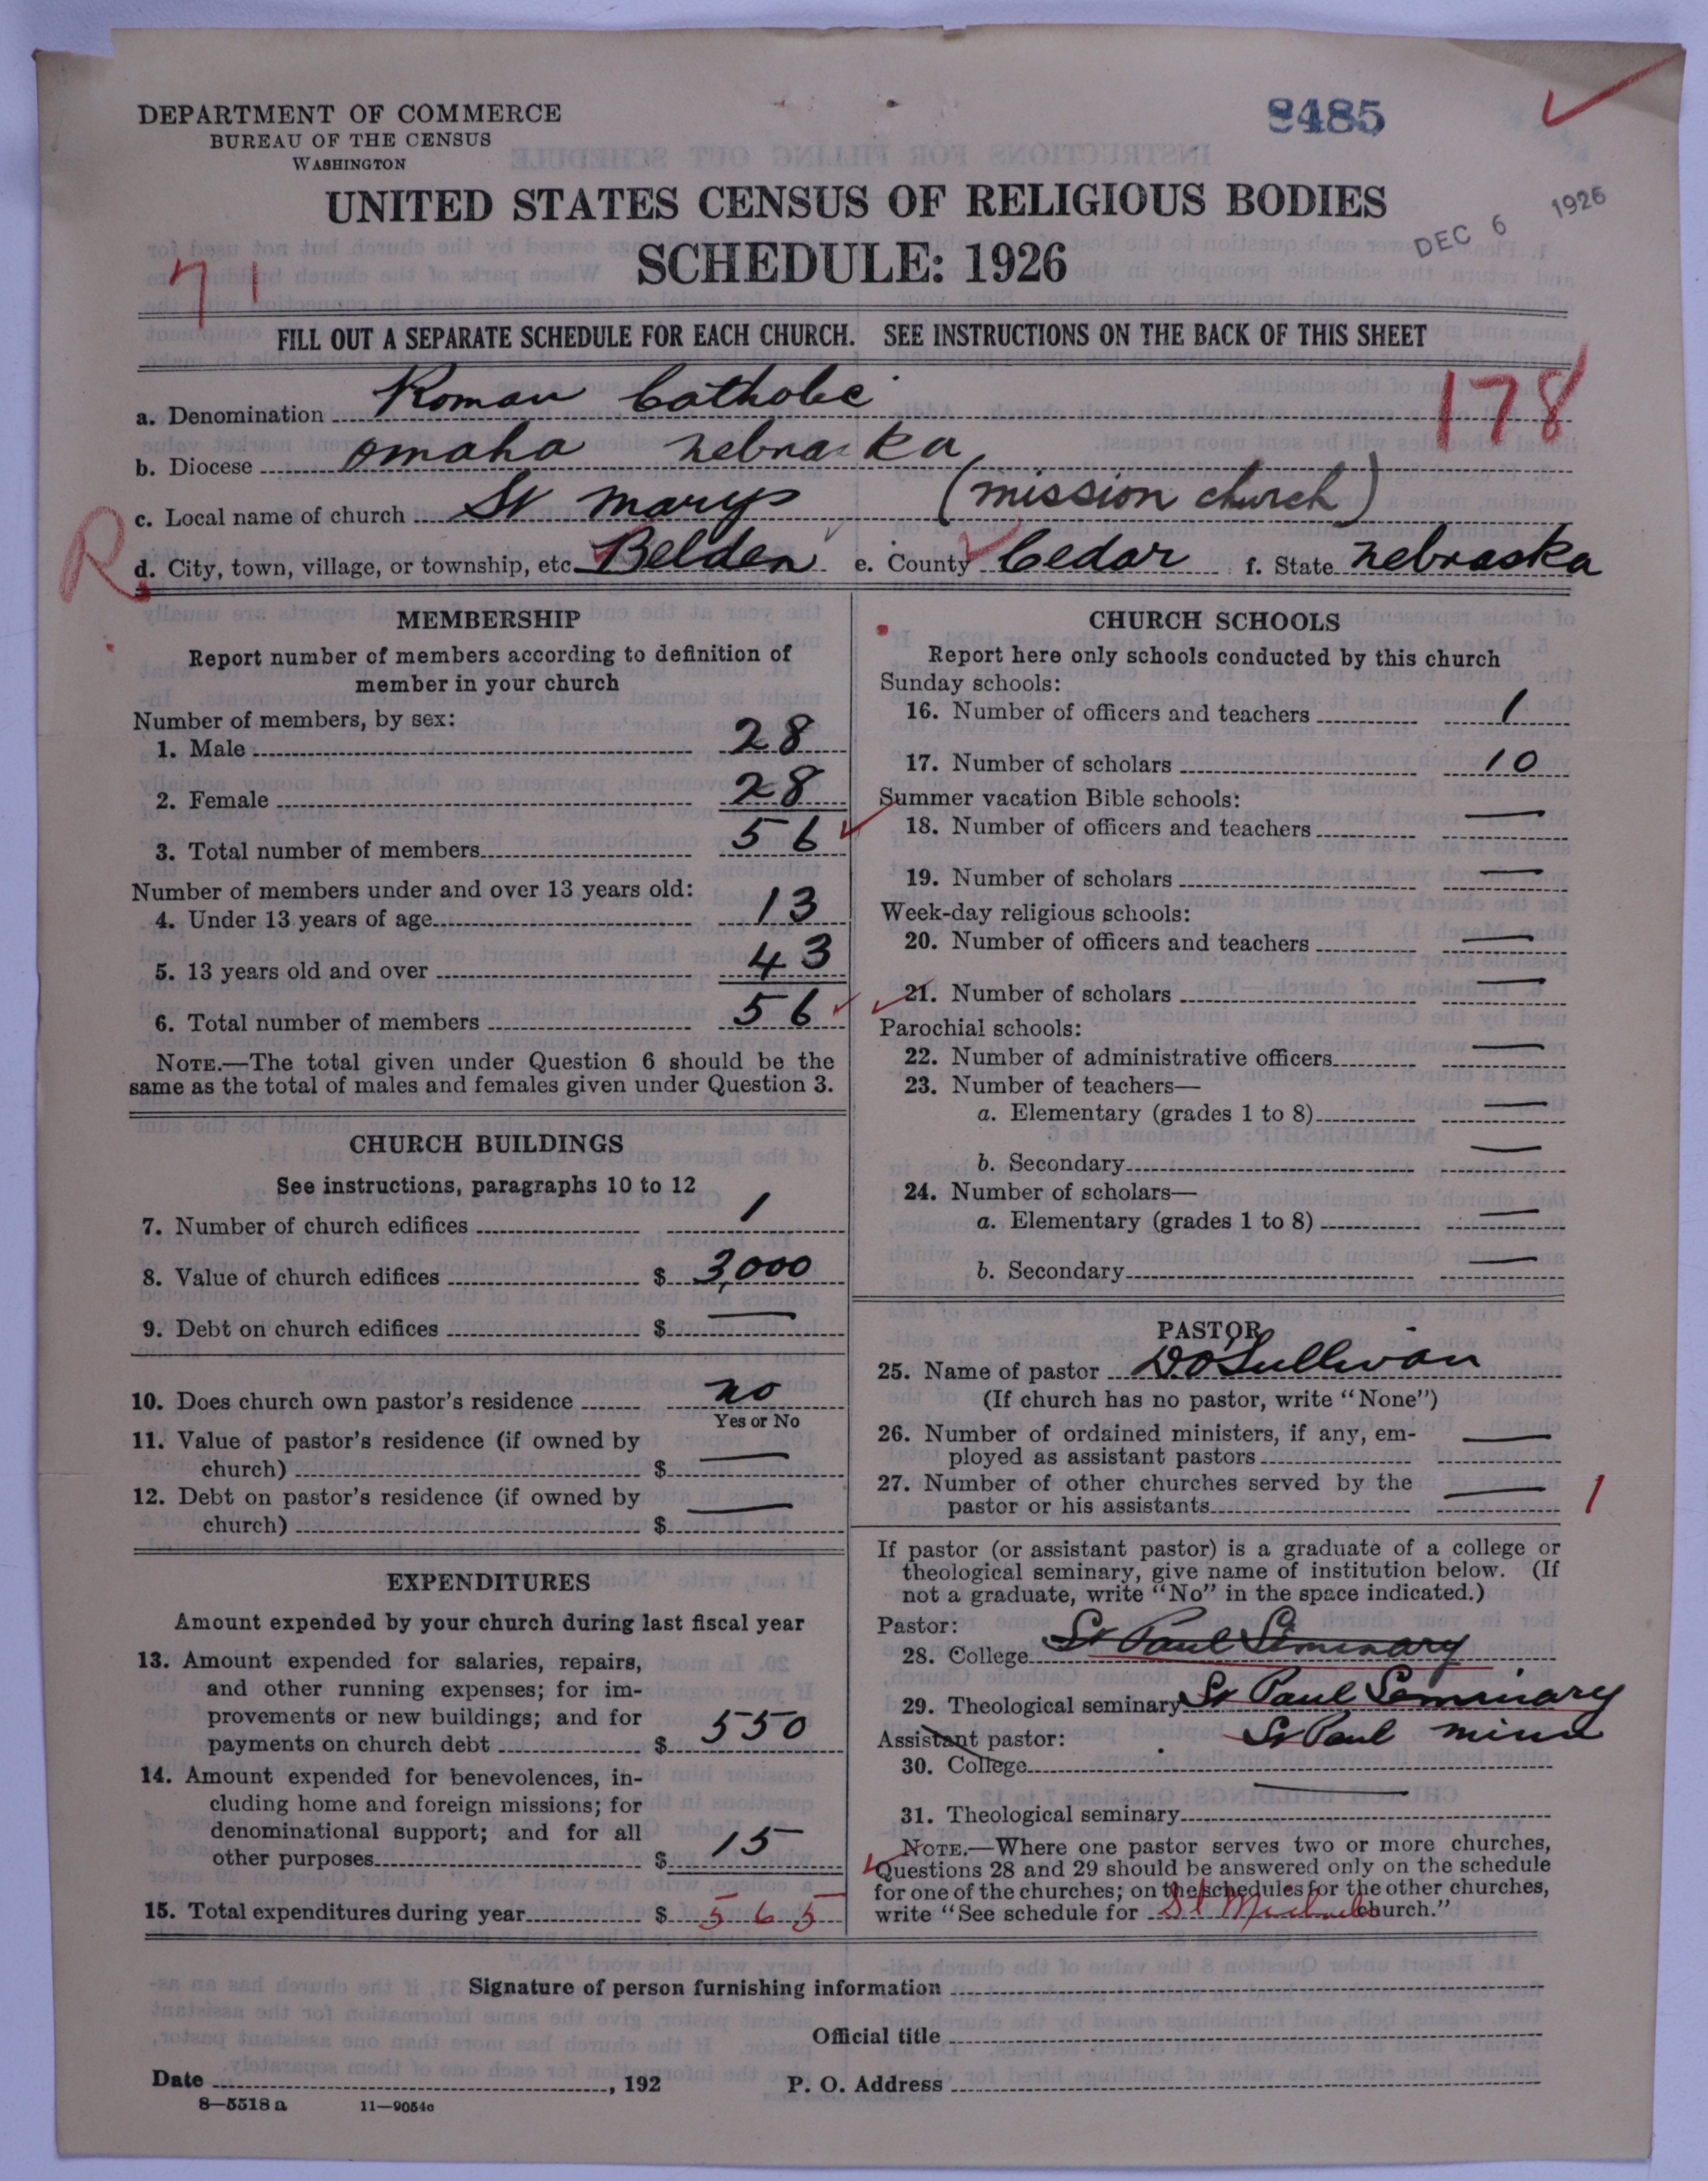 DEPARTMENT OF COMMERCE
BUREAU OF THE CENSUS
WASHINGTON
8485
UNITED STATES CENSUS OF RELIGIOUS BODIES
SCHEDULE: 1926
DEC 6 1926
71
FILL OUT A SEPARATE SCHEDULE FOR EACH CHURCH. SEE INSTRUCTIONS ON THE BACK OF THIS SHEET
178
a. Denomination Roman Catholic
b. Diocese Omaha Nebraska
c. Local name of church St Marys (mission church)
R
d. City, town, village, or township, etc. Belden e. County Cedar f. State Nebraska
MEMBERSHIP
Report number of members according to definition of
member in your church
Number of members, by sex:
1. Male 28
2. Female 28
3. Total number of members 56
Number of members under and over 13 years old:
4. Under 13 years of age 13
5. 13 years old and over 43
6. Total number of members 56
NOTE.—The total given under Question 6 should be the
same as the total of males and females given under Question 3.
CHURCH BUILDINGS
See instructions, paragraphs 10 to 12
7. Number of church edifices 1
8. Value of church edifices $ 3,000
9. Debt on church edifices $ —
10. Does church own pastor's residence no
Yes or No
11. Value of pastor's residence (if owned by
church) $ —
12. Debt on pastor's residence (if owned by
church) $ —
EXPENDITURES
Amount expended by your church during last fiscal year
13. Amount expended for salaries, repairs,
and other running expenses; for im-
provements or new buildings; and for
payments on church debt $ 550
14. Amount expended for benevolences, in-
cluding home and foreign missions; for
denominational support; and for all
other purposes $ 15
15. Total expenditures during year $ 565
CHURCH SCHOOLS
Report here only schools conducted by this church
Sunday schools:
16. Number of officers and teachers 1
17. Number of scholars 10
Summer vacation Bible schools:
18. Number of officers and teachers —
19. Number of scholars —
Week-day religious schools:
20. Number of officers and teachers —
21. Number of scholars —
Parochial schools:
22. Number of administrative officers —
23. Number of teachers—
a. Elementary (grades 1 to 8) —
b. Secondary —
24. Number of scholars—
a. Elementary (grades 1 to 8) —
b. Secondary —
PASTOR
25. Name of pastor D O'Sullivan
(If church has no pastor, write "None")
26. Number of ordained ministers, if any, em-
ployed as assistant pastors —
27. Number of other churches served by the
pastor or his assistants — 1
If pastor (or assistant pastor) is a graduate of a college or
theological seminary, give name of institution below. (If
not a graduate, write "No" in the space indicated.)
Pastor:
28. College St Paul Seminary
29. Theological seminary St Paul Seminary
Assistant pastor: St Paul Minn
30. College
31. Theological seminary —
NOTE.—Where one pastor serves two or more churches,
Questions 28 and 29 should be answered only on the schedule
for one of the churches; on the schedules for the other churches,
write "See schedule for St Michaels church."
Signature of person furnishing information
Official title
Date , 192
P. O. Address
8—5518 a 11—9054c